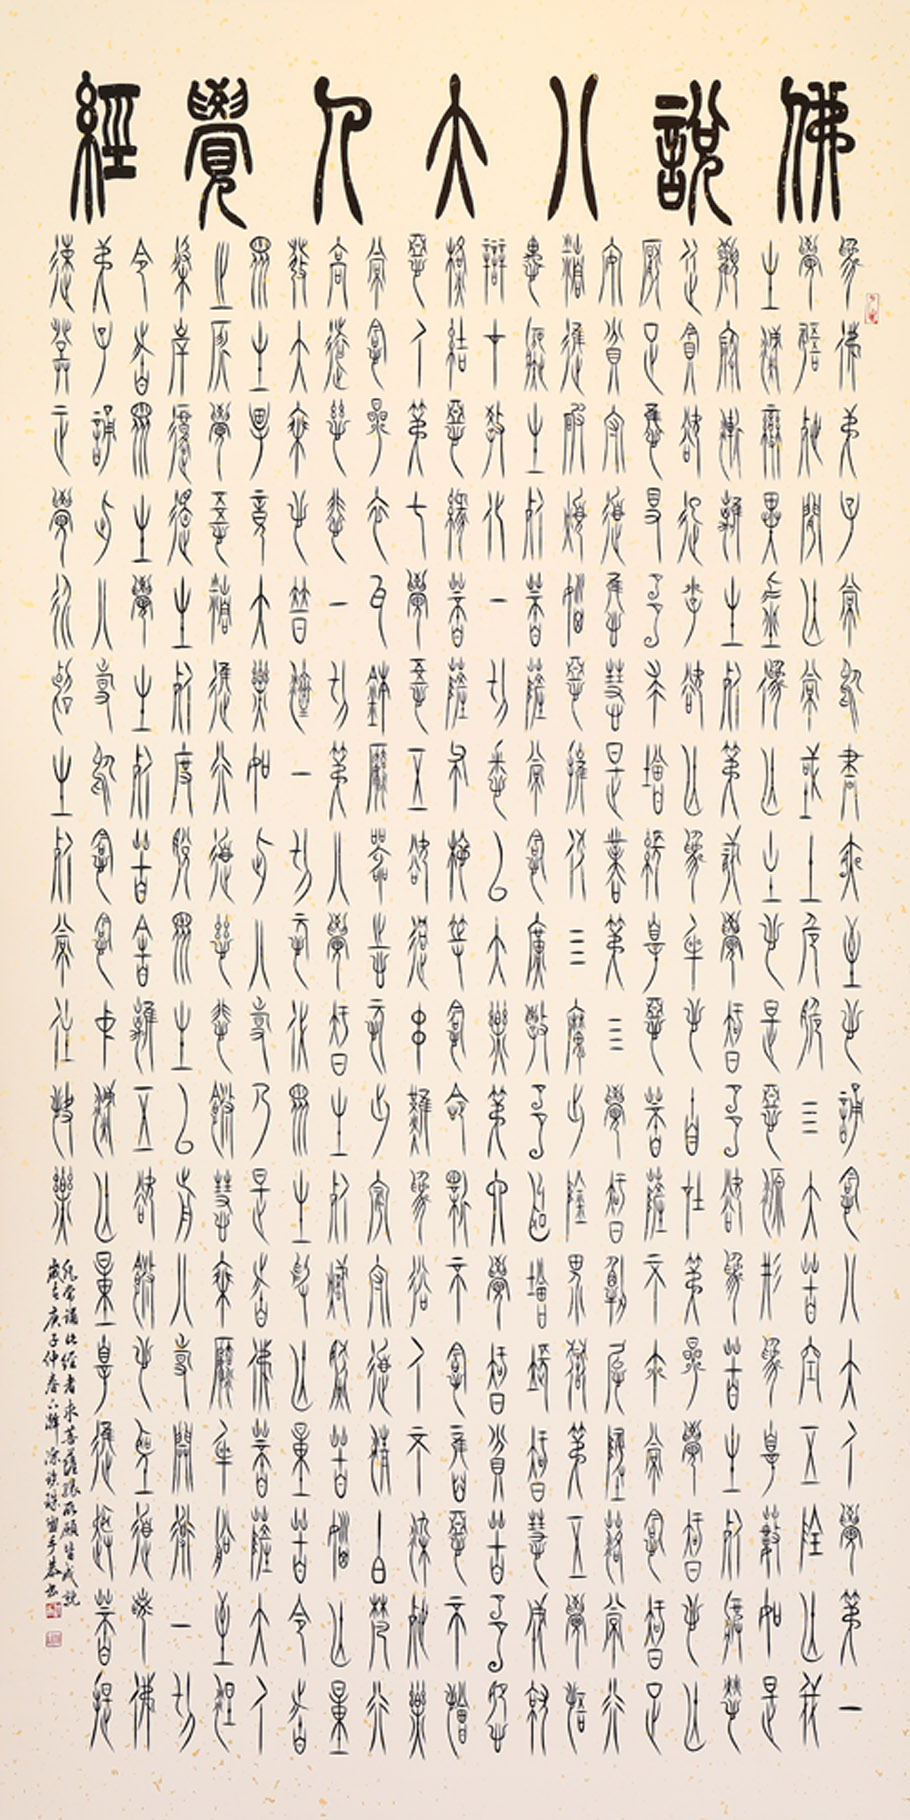 佛說八大人覺經
為佛弟子常於晝夜至心誦念八大人覺第一
覺悟世間無常國土危脆四大苦空五陰無我
生滅變異虛偽無主心是惡源形為罪藪如是
觀察漸離生死第二覺知多欲為苦生死疲勞
從貪欲起少欲無為身心自在第三覺知心無
厭足惟得多求增長罪惡菩薩不爾常念知足
安貧守道惟慧是業第四覺知懈怠墜落常行
精進破煩惱惡摧伏四魔出陰界獄第五覺悟
愚癡生死菩薩常念廣學多聞增長智慧成就
辯才教化一切悉以大樂第六覺知貧苦多怨
橫結惡緣菩薩布施等念怨親不念舊惡不憎
惡人第七覺悟五欲過患雖為俗人不染世樂
常念三衣瓦缽法器志願出家守道清白梵行
高遠慈悲一切第八覺知生死熾然苦惱無量
發大乘心普濟一切願代眾生受無量苦令諸
眾生畢竟大樂如此八事乃是諸佛菩薩大人
之所覺悟精進行道慈悲修慧乘法身船至涅
槃岸復還生死度脫眾生以前八事開導一切
令諸眾生覺生死苦捨離五欲修心聖道若佛
弟子誦此八事於念念中滅無量罪進趣菩提
速登正覺永斷生死常住快樂
凡常誦此經者求菩薩緣所願皆成就
歲在庚子仲春